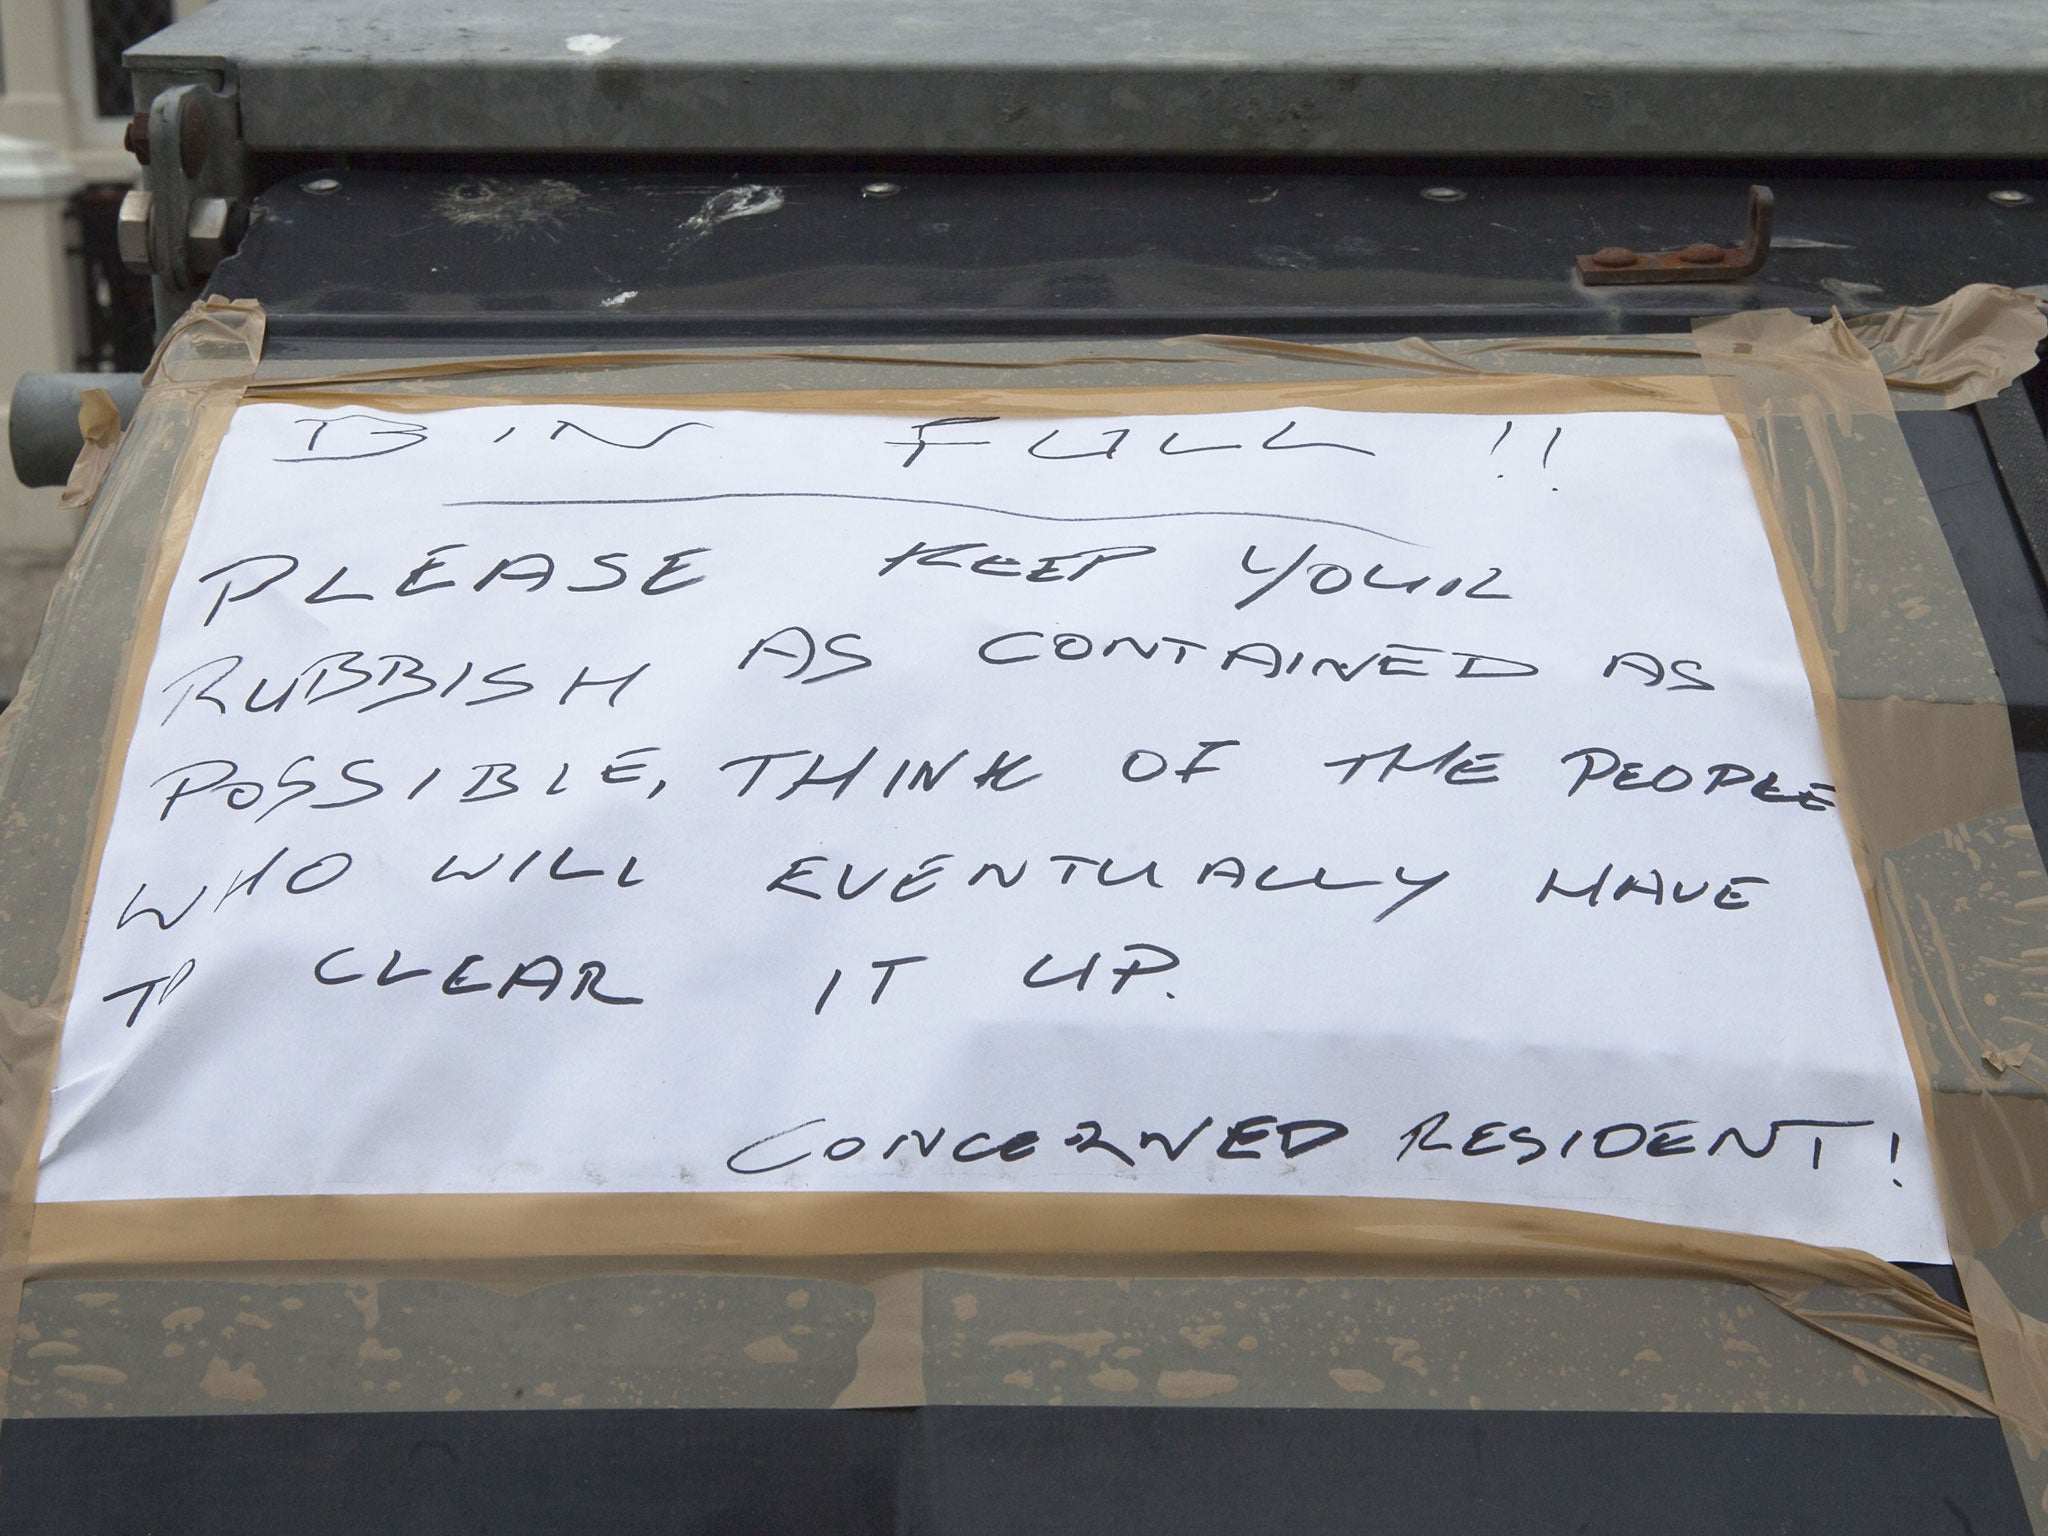 BIN FULL !!
PLEASE KEEP YOUR
RUBBISH AS CONTAINED AS
POSSIBLE, THINK OF THE PEOPLE
WHO WILL EVENTUALLY HAVE
TO CLEAR IT UP.
CONCERNED RESIDENT!